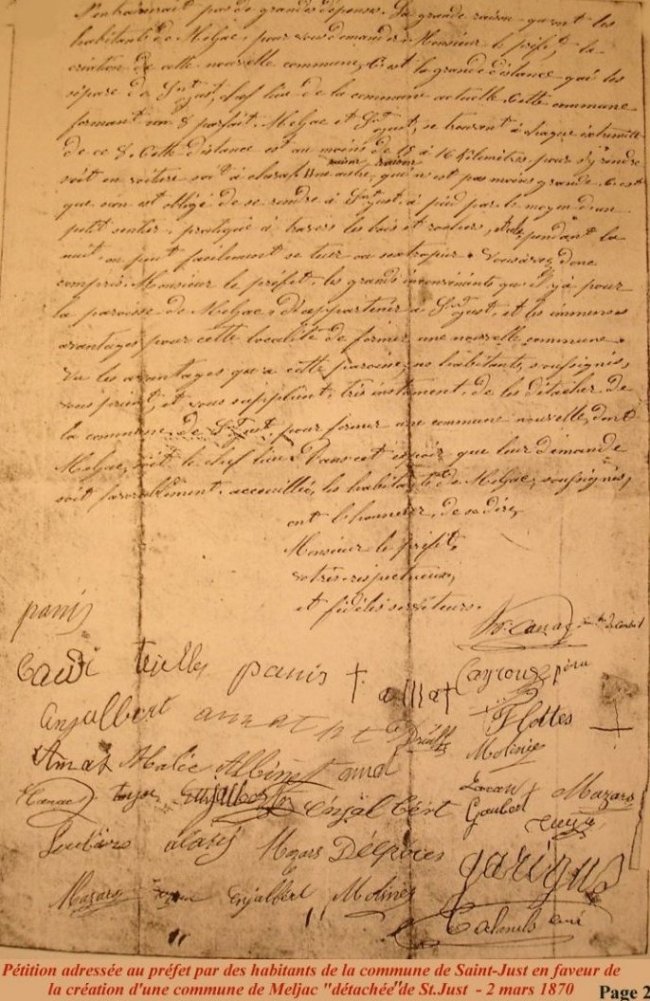 n'entrainerait pas de grandes dépenses. La grande raison qu'ont les
habitants de Meljac, pour vous demander, Monsieur le préfet, la
création de cette nouvelle commune, C'est la grande distance qui les
sépare de St Just, chef lieu de la commune actuelle. Cette commune
formant un 8 parfait, Meljac et St Just, se trouvant à chaque extrémité
de ce 8. Cette distance est au moins de 15 à 16 kilomètres, pour s'y rendre
soit en voiture soit à cheval. Une autre raison, qui n'est pas moins grande, C'est
que l'on est obligé de se rendre à St Just, à pied par le moyen d'un
petit sentier, pratiqué à travers les bois et rochers, pendant la
nuit on peut facilement se tuer ou s'estropier. Vous voyez donc
Monsieur le préfet, les grands inconvénients qu'il y a pour
la paroisse de Meljac, d'appartenir à St Just, et les immenses
avantages pour cette localité de former une nouvelle commune.
Vu les avantages qu'a cette paroisse, les habitants, soussignés,
vous prient, et vous supplient, très instament, de les détacher de
la commune de St Just, pour former une commune nouvelle, dont
Meljac, soit le chef lieu. Dans cet espoir que leur demande
soit favorablement accueillie, les habitants de Meljac, soussignés,
ont l'honneur, de se dire,
Monsieur le préfet,
vos très respectueux,
et fidèles serviteurs.
panis
panis
Cayrouse père
anjalbert
Flottes
Amat Malié Albinet amal
Molinié
Enjalbert Enjalbert
Gaubert Mazars
Mazars Délprées
garrigus
Mazars Enjalbert Molines
Pétition adressée au préfet par des habitants de la commune de Saint-Just en faveur de
la création d'une commune de Meljac "détachée"de St.Just - 2 mars 1870 Page 2